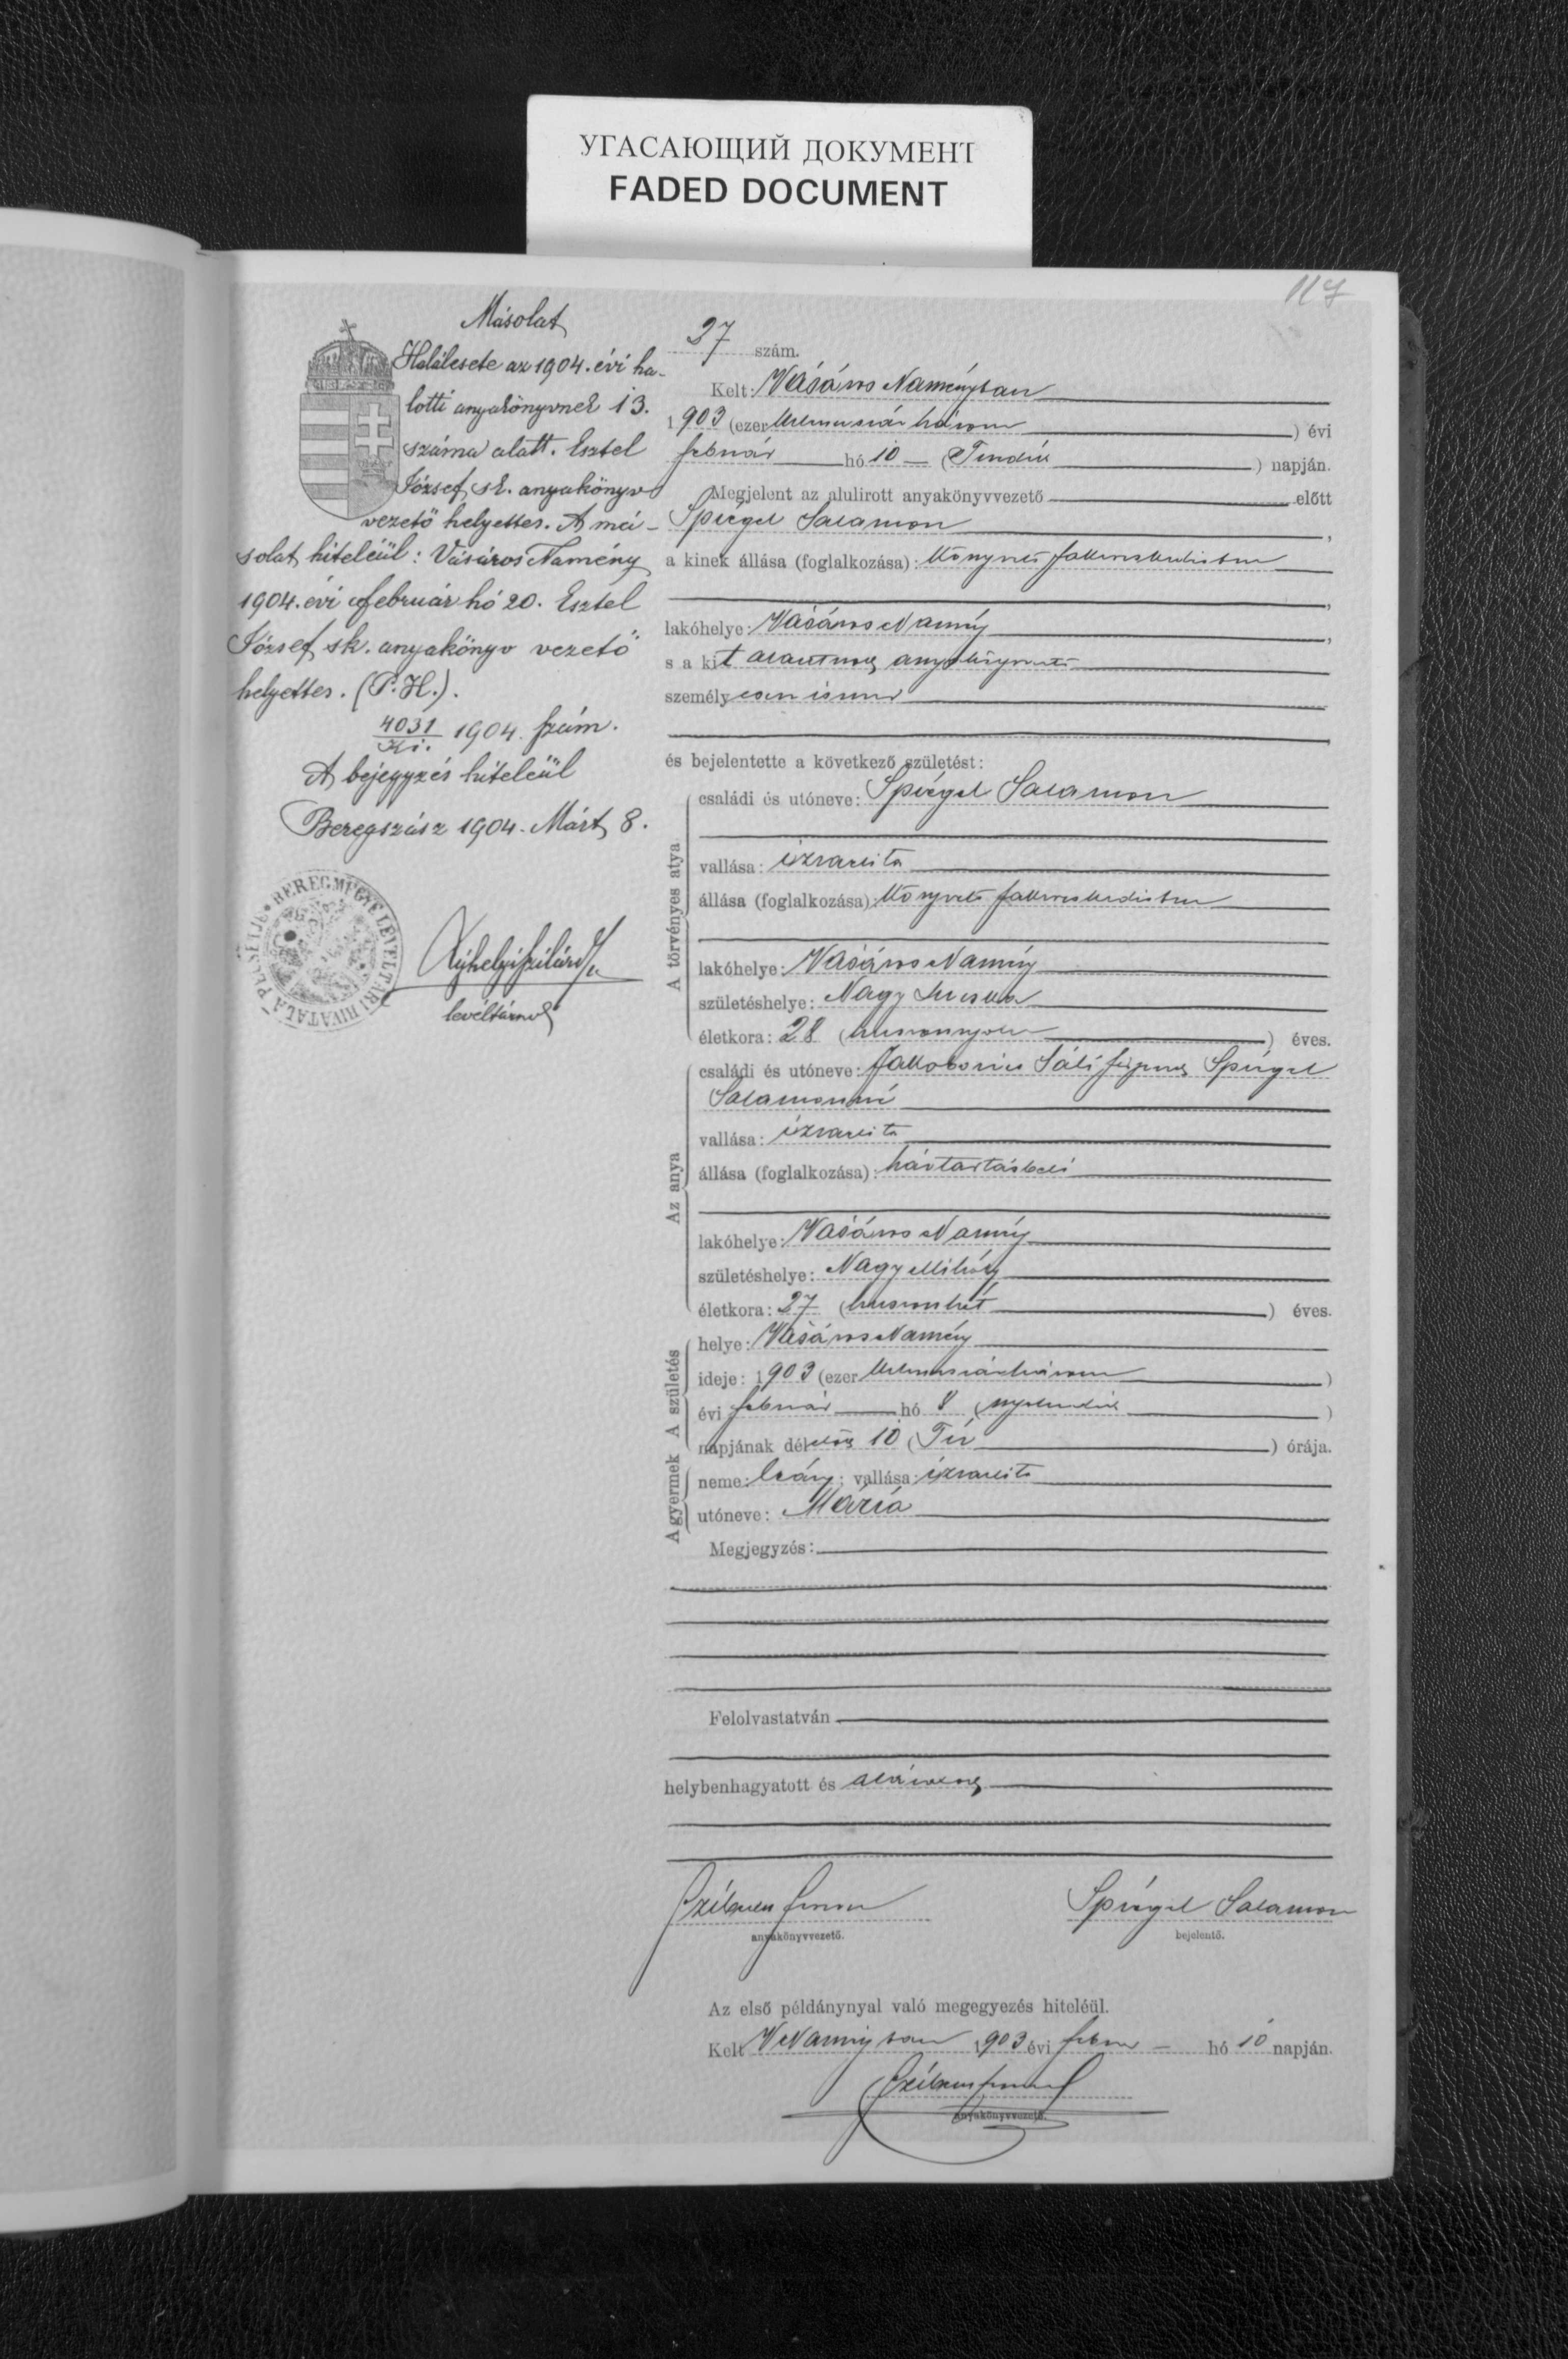 УГАСАЮЩИЙ ДОКУМЕНТ
FADED DOCUMENT
117
Másolat
Halálesete az 1904. évi ha-
lotti anyakönyvnek 13.
száma alatt. Esztel
József sk. anyakönyv
vezető helyettes. A má-
solat hiteléül: Vásáros Namény
1904. évi február hó 20. Esztel
József sk. anyakönyv vezető
helyettes. (P.H.).
4031 1904. szám.
A bejegyzés hiteléül
Beregszász 1904. Márt 8.
BEREGMEGYE LEVÉLTÁRI HIVATALA
levéltárnok
27 szám.
Kelt: Vásáros Naményban
1903 (ezer kilencszáz három) évi
február hó 10 (Tizedik) napján.
Megjelent az alulirott anyakönyvvezető előtt
Spiegel Salamon,
a kinek állása (foglalkozása): könyvelő fakereskedésben
lakóhelye: Vásáros Namény,
s a kit alulirott anyakönyvvezető
személyesen ismer
és bejelentette a következő születést:
A törvényes atya
családi és utóneve: Spiegel Salamon
vallása: izraelita
állása (foglalkozása): könyvelő fakereskedésben
lakóhelye: Vásáros Namény
születéshelye: Nagy
életkora: 28 (huszonnyolc) éves.
Az anya
családi és utóneve: Jakobovics Sáli férjezett Spiegel
Salamonné
vallása: izraelita
állása (foglalkozása): háztartásbeli
lakóhelye: Vásáros Namény
születéshelye: Nagy Mihály
életkora: 27 (huszonhét) éves.
A születés
helye: Vásáros Namény
ideje: 1903 (ezer kilencszázhárom)
évi február hó 8 (nyolcadik)
napjának délelőtt 10 (Tíz) órája.
A gyermek
neme: leány; vallása: izraelita
utóneve: Mária
Megjegyzés:
Felolvastatván
helybenhagyatott és aláíratott
anyakönyvvezető.
Spiegel Salamon
bejelentő.
Az első példánynyal való megegyezés hiteléül.
Kelt V Naményban 1903 évi febr hó 10 napján.
anyakönyvvezető.